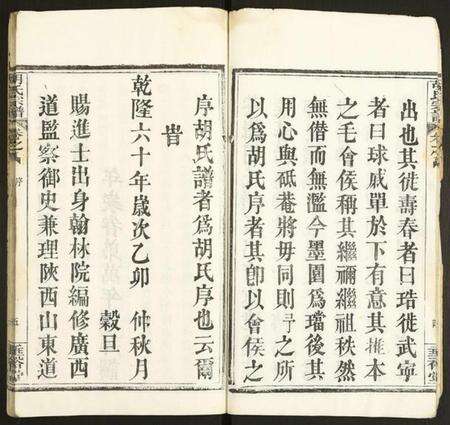 出也其徙壽春者曰琣徙武寧
者曰球戚單於下有意其推本
之毛會侯稱其繼禰繼祖秩然
無僭而無濫今墨園為璫後其
用心與砥菴將毋同則予之所
以為胡氏序者其卽以會侯之
序胡氏譜者為胡氏序也云爾
旹
乾隆六十年歲次乙卯 仲秋月
穀旦
賜進士出身翰林院編修廣西
道監察御史兼理陝西山東道
胡氏宗譜
卷之首
序